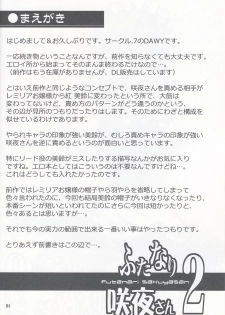 ●まえがき●
はじめまして＆お久しぶりです。サークル.7のDAWYです。
一応続き物ということなんですが、前作を知らなくても大丈夫です。
エロイ所から始まってそのまんま終わるだけなので…。
（前作はもう在庫がありませんが、DL販売はしています）
とはいえ前作と同じようなコンセプトで、咲夜さんを責める相手が
レミリアお嬢様から紅 美鈴に変わったという所で、大筋は
変わってないけど、責め方のパターンがどう違うのかという
その辺が見所のつもりだったりはします。そのためにわざと構成を
似せているわけであります。
やられキャラの印象が強い美鈴が、むしろ責めキャラの印象が強い
咲夜さんを逆に責めるというのが面白いと思っています。
特にリード役の美鈴がミスしたりする描写なんかがお気に入り
ですね。エロ本としてはこういうのは不要なんですけれども…。
これはどうしても入れたかったのですね。
前作ではレミリアお嬢様の帽子やら羽やらを省略してしまって
色々言われたのに、今回も結局美鈴の帽子がいきなりなくなったり、
本番シーンが短いといわれてたのにさらに今回は短かったりと、
色々あるとは思いますが…。
それでも今の実力の範囲で出来る一番いい事はやったつもりです。
とりあえず前書きはこの辺で…。
ふたなり
Futanari Sakuyasan
咲夜さん
2